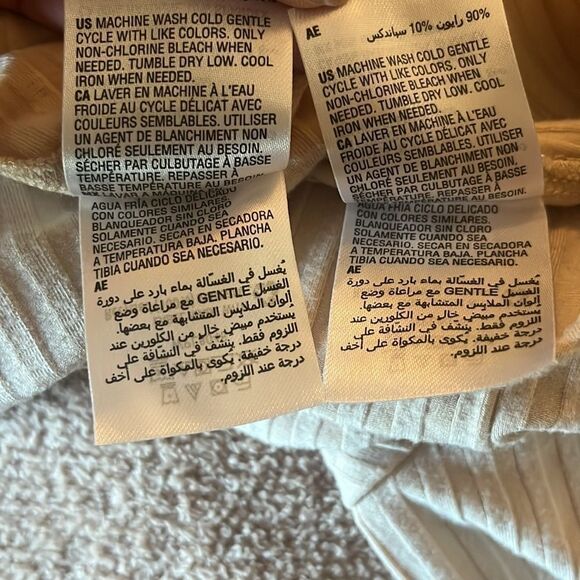 US MACHINE WASH COLD GENTLE
CYCLE WITH LIKE COLORS. ONLY
NON-CHLORINE BLEACH WHEN
NEEDED. TUMBLE DRY LOW. COOL
IRON WHEN NEEDED.
CA LAVER EN MACHINE À L'EAU
FROIDE AU CYCLE DÉLICAT AVEC
COULEURS SEMBLABLES. UTILISER
UN AGENT DE BLANCHIMENT NON
CHLORÉ SEULEMENT AU BESOIN.
SÉCHER PAR CULBUTAGE À BASSE
TEMPÉRATURE. REPASSER À
BASSE TEMPÉRATURE AU BESOIN.
LAVAR A MÁQUINA
AGUA FRÍA CICLO DELICADO
CON COLORES SIMILARES.
BLANQUEADOR SIN CLORO
SOLAMENTE CUANDO SEA
NECESARIO. SECAR EN SECADORA
A TEMPERATURA BAJA. PLANCHA
TIBIA CUANDO SEA NECESARIO.
AE
يُغسل في الغسّالة بماء بارد على دورة
الغسيل GENTLE مع مراعاة وضع
ألوان الملابس المتشابهة مع بعضها.
يستخدم مبيض خالٍ من الكلورين عند
اللزوم فقط. ينشف في النشافة على
درجة خفيفة. يكوى بالمكواة على أخف
درجة عند اللزوم.
AE
90% رايون 10% سباندكس
US MACHINE WASH COLD GENTLE
CYCLE WITH LIKE COLORS. ONLY
NON-CHLORINE BLEACH WHEN
NEEDED. TUMBLE DRY LOW. COOL
IRON WHEN NEEDED.
CA LAVER EN MACHINE À L'EAU
FROIDE AU CYCLE DÉLICAT AVEC
COULEURS SEMBLABLES. UTILISER
UN AGENT DE BLANCHIMENT NON
CHLORÉ SEULEMENT AU BESOIN.
SÉCHER PAR CULBUTAGE À BASSE
TEMPÉRATURE. REPASSER À
BASSE TEMPÉRATURE AU BESOIN.
AGUA FRÍA CICLO DELICADO
CON COLORES SIMILARES.
BLANQUEADOR SIN CLORO
SOLAMENTE CUANDO SEA
NECESARIO. SECAR EN SECADORA
A TEMPERATURA BAJA. PLANCHA
TIBIA CUANDO SEA NECESARIO.
AE
يُغسل في الغسّالة بماء بارد على دورة
الغسيل GENTLE مع مراعاة وضع
ألوان الملابس المتشابهة مع بعضها.
يستخدم مبيض خالٍ من الكلورين عند
اللزوم فقط. ينشف في النشافة على
درجة خفيفة. يكوى بالمكواة على أخف
درجة عند اللزوم.